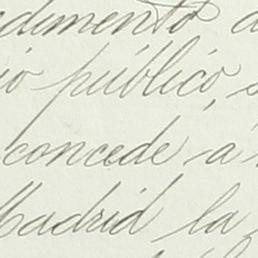 dimento
público,
concede á
Madrid la